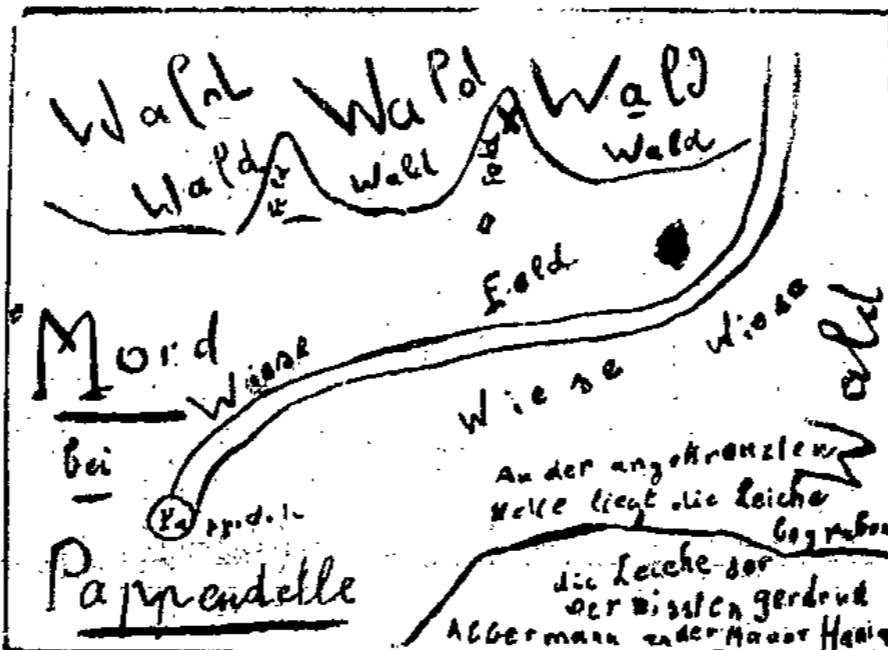 Wald Wald Wald
Wald Wald Wald
Feld
Mord
Wiese Wiese Wiese
Wald
bei
Pappendelle
An der angekreuzten
Stelle liegt die Leiche
begraben
die Leiche der
vermissten gerdrud
Albermann an der Mauer Haniel